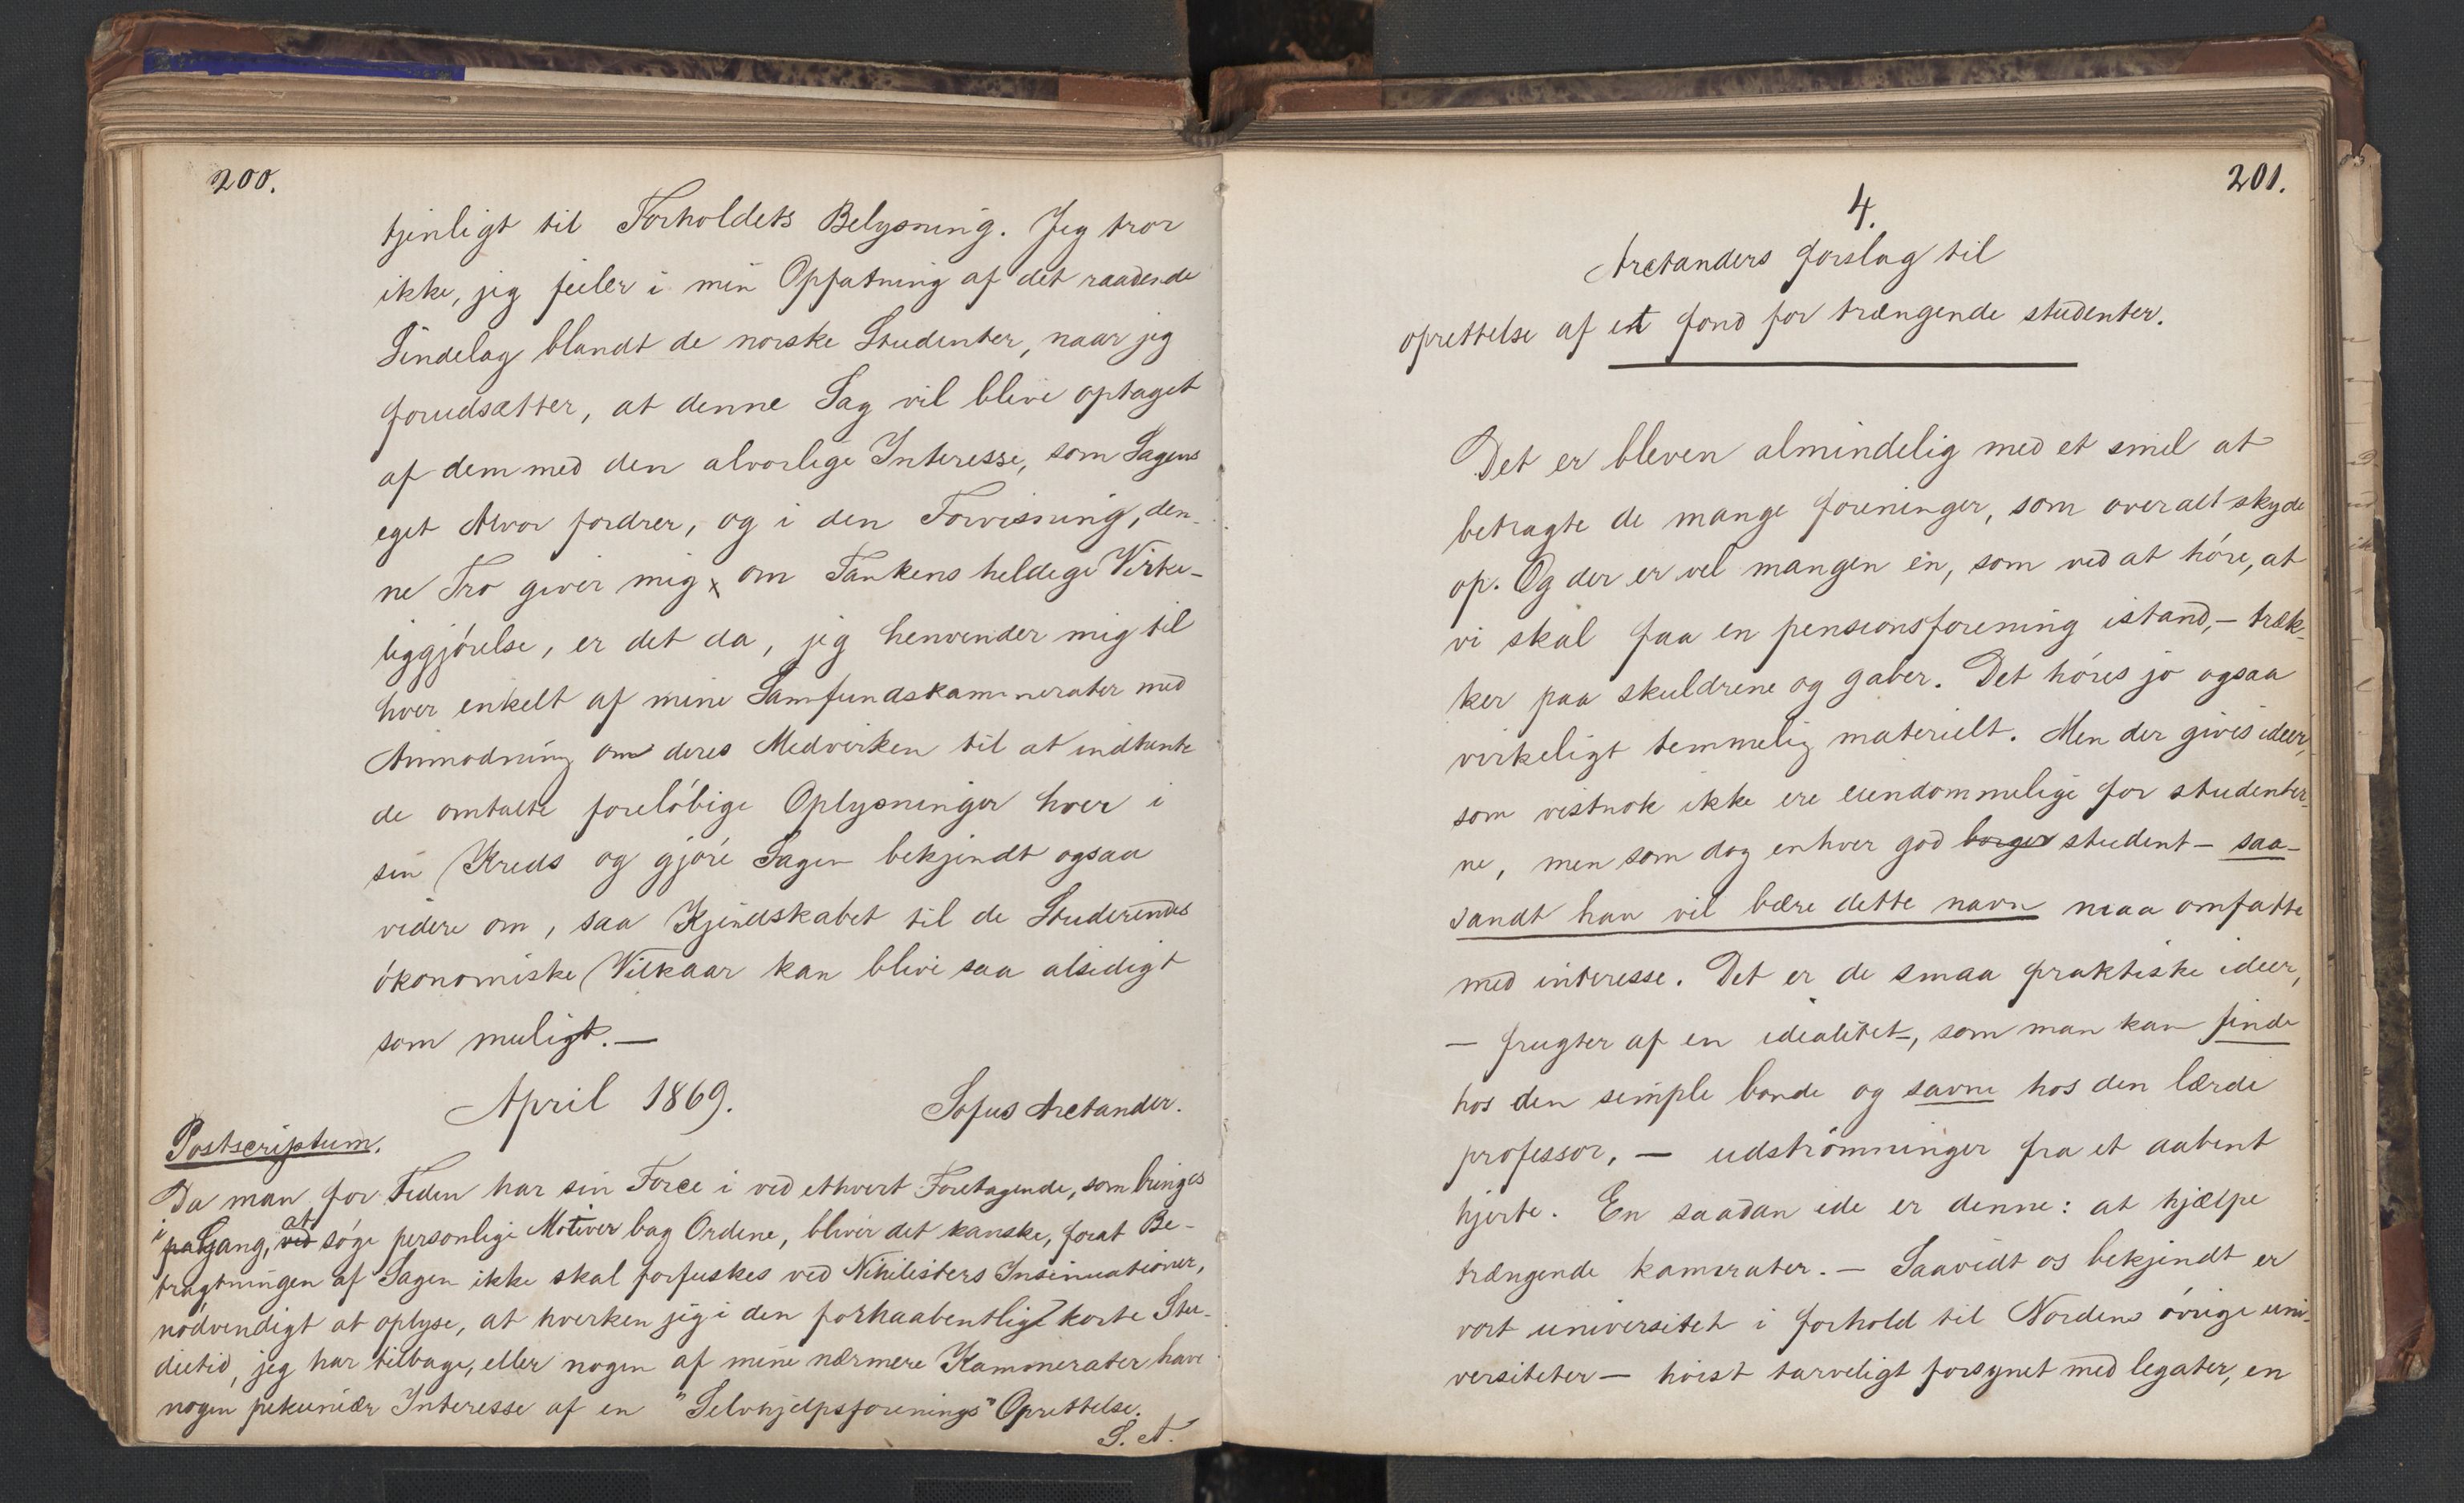 200.
tjenligt til Forholdets Belysning. Jeg tror
ikke, jeg feiler i min Opfatning af det raadende
Sindelag blandt de norske Studenter, naar jeg
forudsætter, at denne Sag vil blive optaget
af dem med den alvorlige Interesse, som Sagens
eget Alvor fordrer, og i den Forvisning, den-
ne Tro giver mig om Tankens heldige Virke-
liggjörelse, er det da, jeg henvender mig til
hver enkelt af mine Samfundskammerater med
Anmodning om deres Medvirken til at indhente
de omtalte foreløbige Oplysninger hver i
sin Kreds og gjöre Sagen bekjendt ogsaa
videre om, saa Kjendskabet til de Studerendes
ökonomiske Vilkaar kan blive saa alsidigt
som muligt. —
April 1869. Sofus Arctander.
Postscriptum.
Da man for Tiden har sin Force i ved ethvert Foretagende, som bringes
i paa Gang, ved at söge personlige Motiver bag Ordene, bliver det kanske, forat Be-
tragtningen af Sagen ikke skal forfuskes ved Nihilisters Insinuationer,
nödvendigt at oplyse, at hverken jeg i den forhaabentlig korte Stu-
dietid, jeg har tilbage, eller nogen af mine nærmere Kammerater have
nogen pekuniær Interesse af en "Selvhjelpsforenings" Oprettelse.
S. A.
201.
4.
Arctanders forslag til
oprettelse af et fond for trængende studenter.
Det er bleven almindelig med et smil at
betragte de mange foreninger, som overalt skyde
op. Og der er vel mangen en, som ved at höre, at
vi skal faa en pensionsforening istand, — træk-
ker paa skuldrene og gaber. Det höres jo ogsaa
virkeligt temmelig materielt. Men der gives ideer,
som vistnok ikke ere eiendommelige for studenter-
ne, men som dog enhver god borger student — saa-
sandt han vil bære dette navn maa omfatte
med interesse. Det er de smaa praktiske ideer,
— frugter af en idealitet —, som man kan finde
hos den simple bonde og savne hos den lærde
professor, — udströmninger fra et aabent
hjerte. En saadan ide er denne: at hjælpe
trængende kamerater. — Saavidt os bekjendt er
vort universitet i forhold til Nordens övrige uni-
versiteter — höist tarveligt forsynet med legater, en